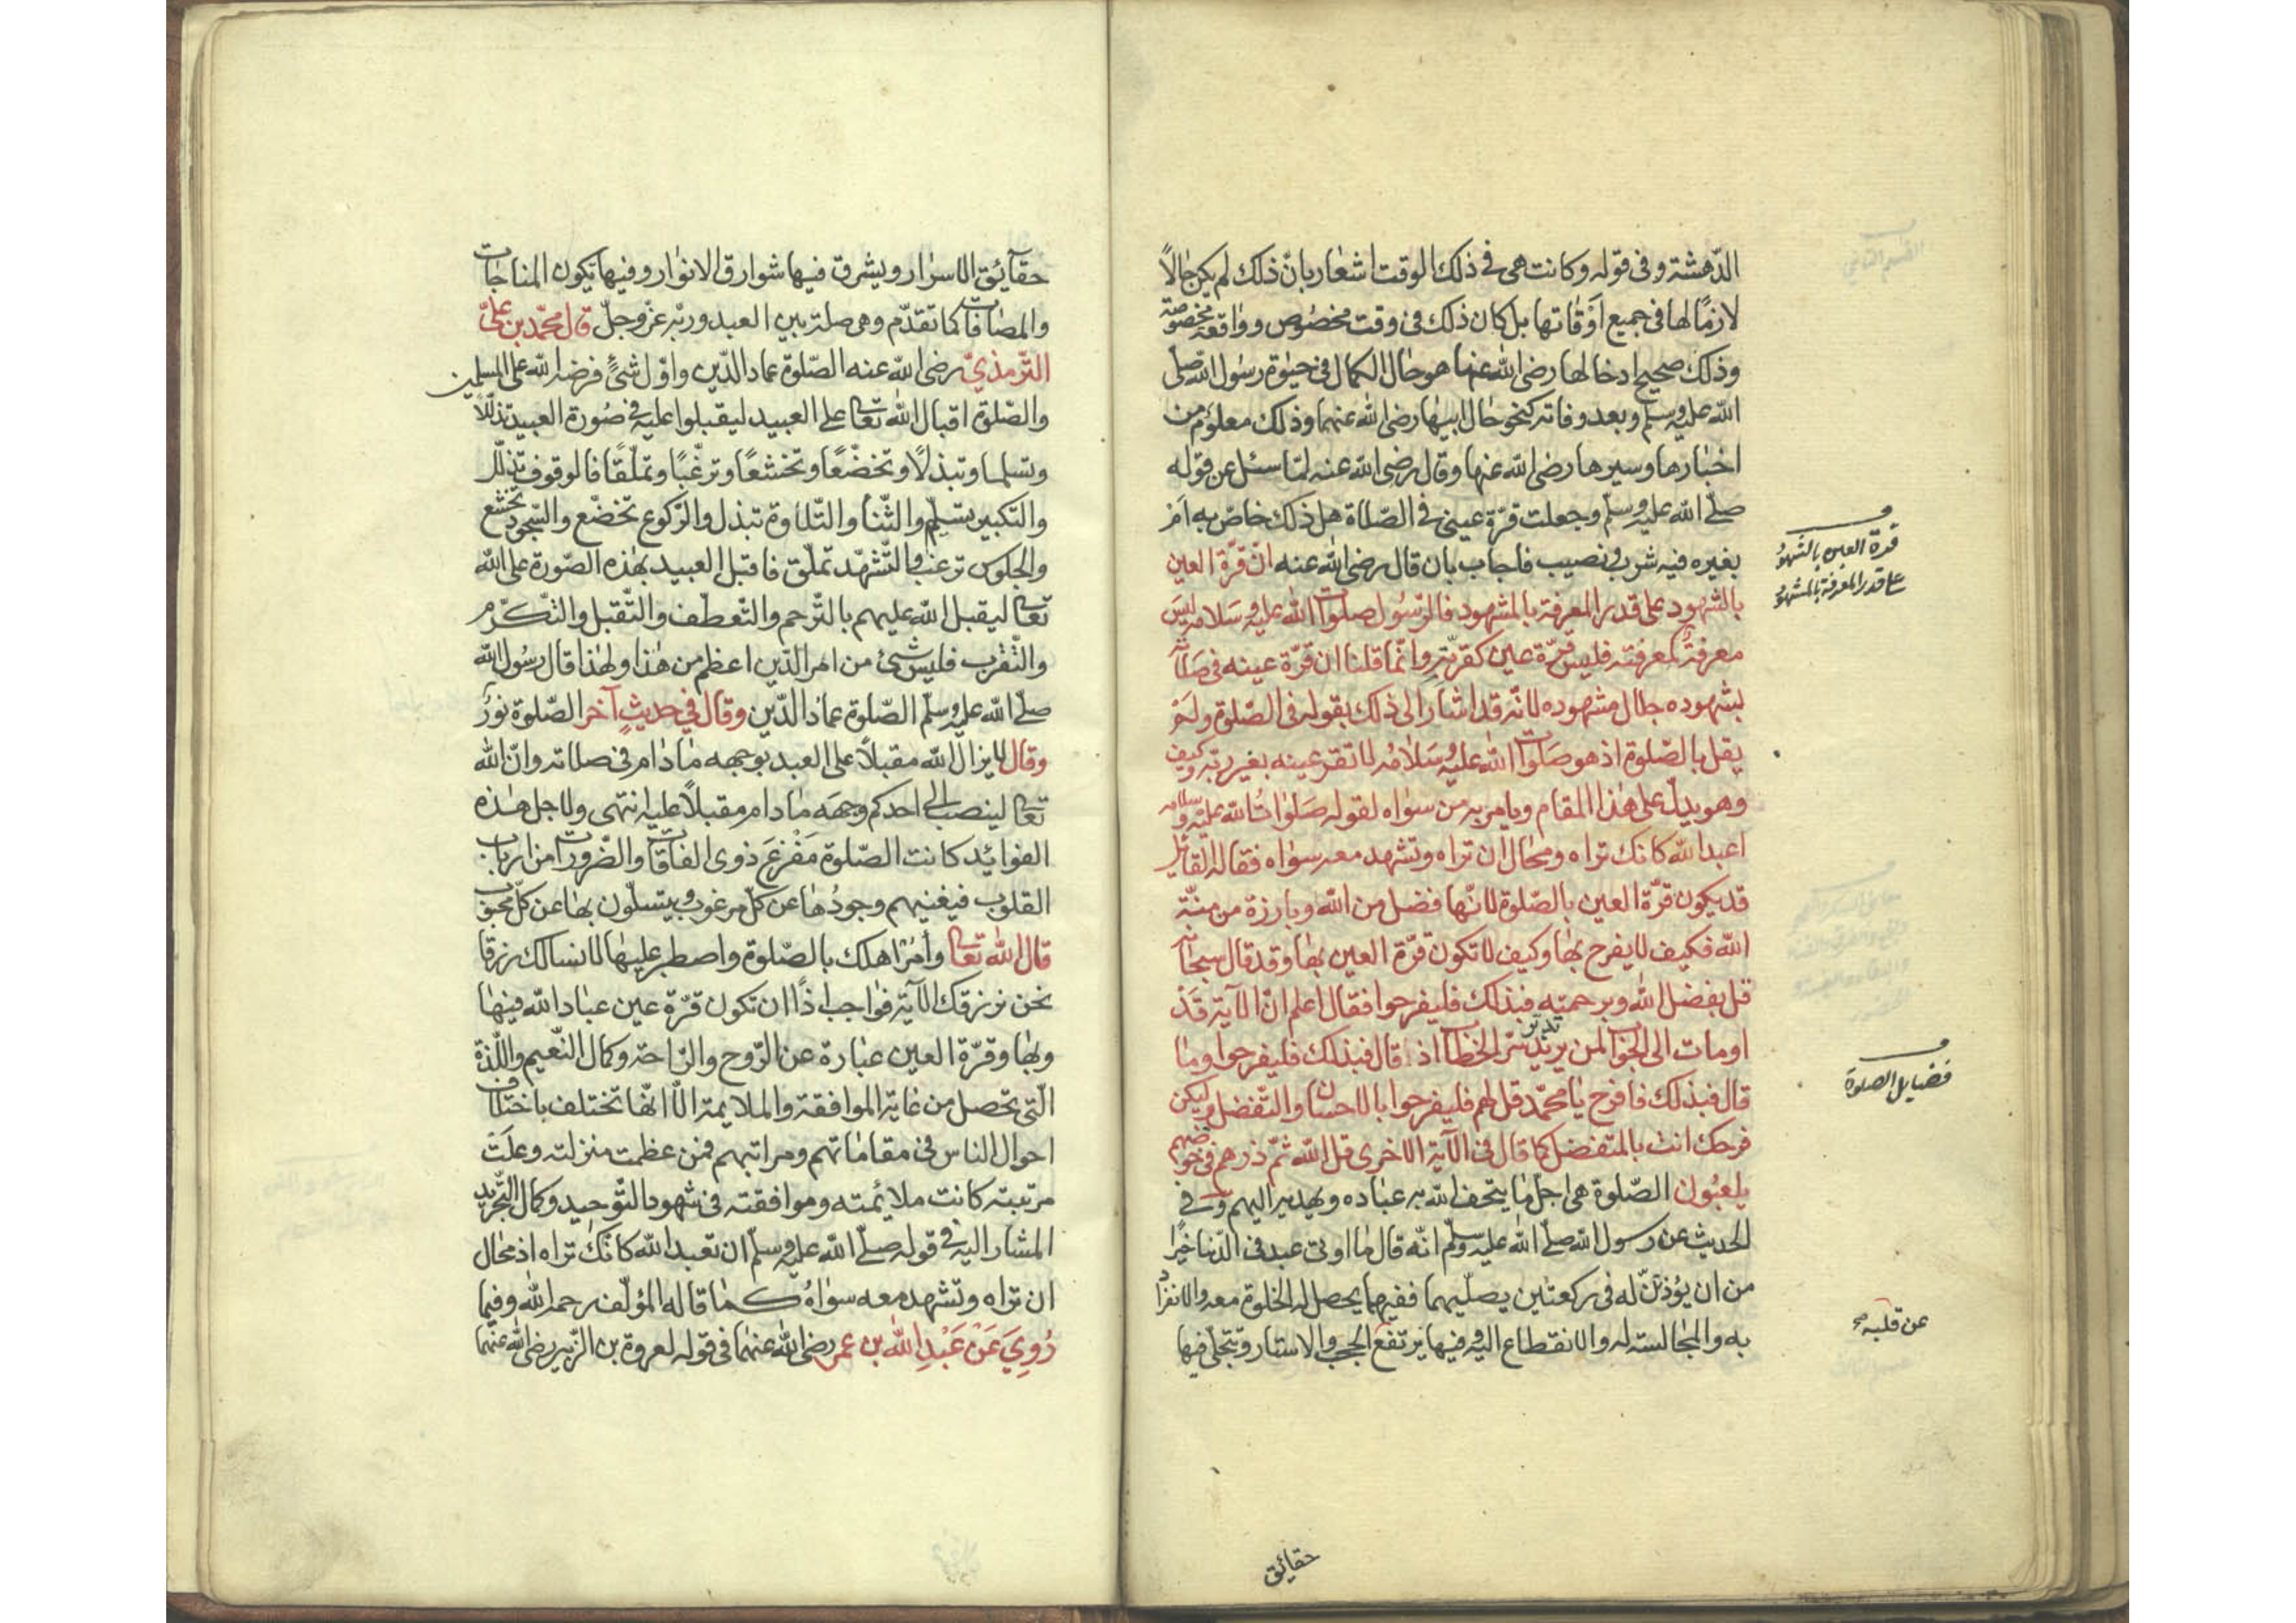 الدّهشة وفى قوله وكانت هى فى ذلك الوقت اشعار بانّ ذلك لم يكن حالاً
لازمًا لها فى جميع اوقاتها بل كان ذلك فى وقت مخصوص وواقعة مخصوصة
وذلك صحيح اذ حالها رضى الله عنها هو حال الكمال فى حيوة رسول الله صلّى
الله عليه وسلم وبعد وفاته كنحو حال ابيها رضى الله عنهما وذلك معلوم من
اخبارها وسيرها رضى الله عنها وقال رضى الله عنه لمّا سئل عن قوله
صلّى الله عليه وسلم وجعلت قرّة عينى فى الصّلاة هل ذلك خاصّ به ام
بغيره فيه شرب ونصيب فاجاب بان قال رضى الله عنه انّ قرّة العين
بالشهود على قدر المعرفة بالمشهود فالرّسول صلوات الله عليه وسلامه ليس
معرفةٌ كمعرفته فليس قرّة عين كقرّته وانّما قلنا ان قرّة عينه فى صلاته
بشهوده جلال مشهوده لانّه قد اشار الى ذلك بقوله فى الصّلوة ولم
يقل بالصّلوة اذ هو صلوات الله عليه وسلامه لا تقر عينه بغير ربّه وكيف
وهو يدلّ على هذا المقام ويامر به من سواه لقوله صلوات الله عليه وسلامه
اعبد الله كانك تراه ومحال ان تراه وتشهد معه سواه فقال له القائل
قد يكون قرّة العين بالصّلوة لانّها فضل من الله وبارزة من منّة
الله فكيف لا يفرح بها وكيف لا تكون قرّة العين بها وقد قال سبحانه
قل بفضل الله وبرحمته فبذلك فليفرحوا فقال اعلم انّ الآية قد
اومات الى الجواب لمن تدبّر سرّ الخطاب اذ قال فبذلك فليفرحوا وما
قال فبذلك فافرح يا محمّد قل لهم فليفرحوا بالاحسان والتّفضل وليكن
فرحك انت بالمتفضل كما قال فى الآية الاخرى قل الله ثمّ ذرهم فى خوضهم
يلعبون الصّلوة هى اجلّ ما يتحف الله به عباده ويهديه اليهم وفى
الحديث عن رسول الله صلّى الله عليه وسلّم انّه قال ما اوتى عبد فى الدّنيا خيرًا
من ان يؤذن له فى ركعتين يصلّيهما ففيهما يحصل له الخلوة معه والانفراد
به والمجالسة له والانقطاع اليه وفيها يرتفع الحجب والاستار وتتجلّى فيها
قرة العين بالشهود
على قدر المعرفة بالمشهود
فضايل الصلوة
عن قلبه صح
حقائق
حقآئق الاسرار ويشرق فيها شوارق الانوار وفيها تكون المناجات
والمصافات كما تقدّم وهى صلة بين العبد وربّه عزّ وجلّ قال محمّد بن علىّ
التّرمذىّ رضى الله عنه الصّلوة عماد الدّين واوّل شئ فرضه الله على المسلمين
والصّلوة اقبال الله تعالى على العبيد ليقبلوا عليه فى صورة العبيد تذلّلاً
وتسلما وتبذلاً وتخضّعًا وتخشعًا وترغّبًا وتملّقًا فالوقوف تذلّل
والتكبير تسليم والثّنا والتّلاوة تبذل والرّكوع تخضّع والسّجود تخشّع
والجلوس ترغّب والتّشهّد تملّق فاقبل العبيد بهذه الصّورة على الله
تعالى ليقبل الله عليهم بالتّرحم والتّعطّف والتّقبل والتّكرّم
والتّقرب فليس شئ من امر الدّين اعظم من هذا ولهذا قال رسول الله
صلّى الله عليه وسلّم الصّلوة عماد الدّين وقال فى حديثٍ آخر الصّلوة نورٌ
وقال لا يزال الله مقبلاً على العبد بوجهه ما دام فى صلاته وانّ الله
تعالى لينصب الى احدكم وجهه ما دام مقبلاً عليه انتهى ولاجل هذه
الفوائد كانت الصّلوة مفزع ذوى الفاقات والضّرورات من ارباب
القلوب فيغنيهم وجودها عن كلّ مرغوب ويتسلّون بها عن كلّ محبوب
قال الله تعالى وأمر اهلك بالصّلوة واصطبر عليها لا نسالك رزقا
نحن نرزقك الآية فواجب اذًا ان تكون قرّة عين عباد الله فيها
وبها وقرّة العين عبارة عن الرّوح والرّاحة وكمال النّعيم واللّذة
الّتى تحصل من غاية الموافقة والملايمة الّا انّها تختلف باختلاف
احوال الناس فى مقاماتهم ومراتبهم فمن عظمت منزلته وعلت
مرتبته كانت ملائمته وموافقته فى شهود التّوحيد وكمال التّجريد
المشار اليه فى قوله صلّى الله عليه وسلّم ان تعبد الله كانّك تراه اذ محال
ان تراه وتشهد معه سواه كما قاله المؤلّف رحمه الله وفيما
رُوِيَ عَنْ عَبْدِ الله بن عمر رضى الله عنهما فى قوله لعروة بن الزّبير رضى الله عنهما